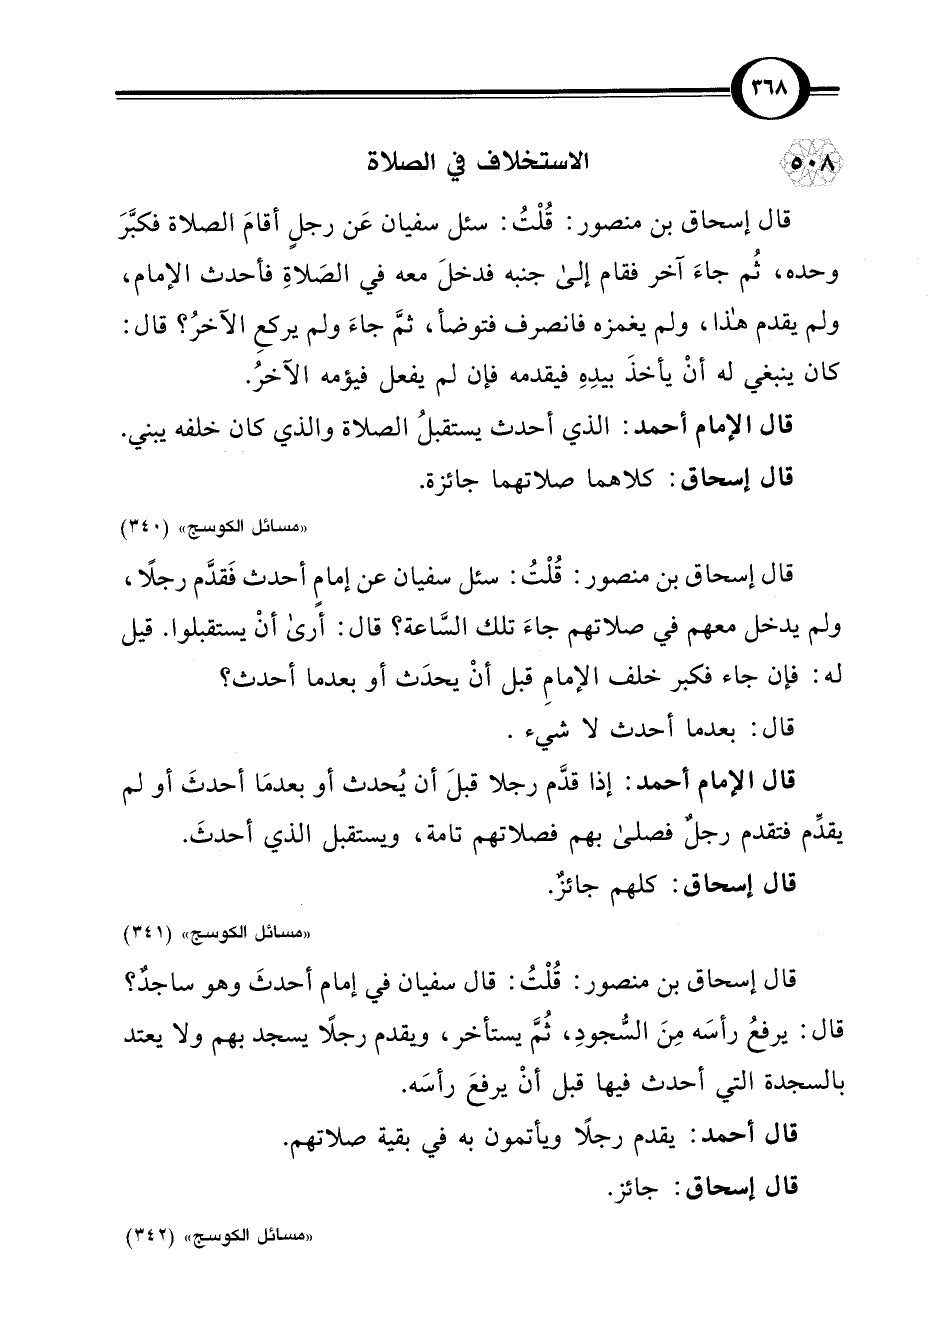 ٣٦٨
٥٠٨ الاستخلاف في الصلاة
قال إسحاق بن منصور: قُلْتُ: سئل سفيان عَن رجلٍ أقامَ الصلاة فكبَّرَ
وحده، ثُم جاءَ آخر فقام إلىٰ جنبه فدخلَ معه في الصَلاةِ فأحدث الإمام،
ولم يقدم هذا، ولم يغمزه فانصرف فتوضأ، ثمَّ جاءَ ولم يركعِ الآخرُ؟ قال:
كان ينبغي له أنْ يأخذَ بيدِهِ فيقدمه فإن لم يفعل فيؤمه الآخرُ.
قال الإمام أحمد: الذي أحدث يستقبلُ الصلاة والذي كان خلفه يبني.
قال إسحاق: كلاهما صلاتهما جائزة.
«مسائل الكوسج» (٣٤٠)
قال إسحاق بن منصور: قُلْتُ: سئل سفيان عن إمامٍ أحدث فَقدَّم رجلًا،
ولم يدخل معهم في صلاتهم جاءَ تلك السَّاعة؟ قال: أرىٰ أنْ يستقبلوا. قيل
له: فإن جاء فكبر خلف الإمامِ قبل أنْ يحدَث أو بعدما أحدث؟
قال: بعدما أحدث لا شيء .
قال الإمام أحمد: إذا قدَّم رجلا قبلَ أن يُحدث أو بعدمَا أحدثَ أو لم
يقدِّم فتقدم رجلٌ فصلىٰ بهم فصلاتهم تامة، ويستقبل الذي أحدثَ.
قال إسحاق: كلهم جائزٌ.
«مسائل الكوسج» (٣٤١)
قال إسحاق بن منصور: قُلْتُ: قال سفيان في إمام أحدثَ وهو ساجدٌ؟
قال: يرفعُ رأسَه مِنَ السُّجودِ، ثُمَّ يستأخر، ويقدم رجلًا يسجد بهم ولا يعتد
بالسجدة التي أحدث فيها قبل أنْ يرفعَ رأسَه.
قال أحمد: يقدم رجلًا ويأتمون به في بقية صلاتهم.
قال إسحاق: جائز.
«مسائل الكوسج» (٣٤٢)